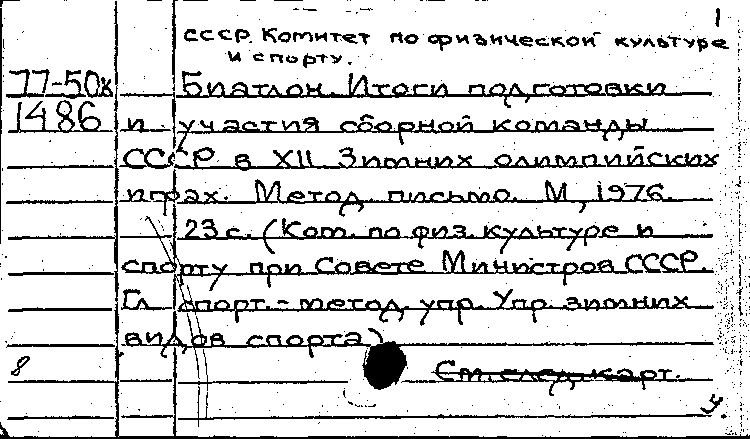 1
СССР. Комитет по физической культуре
и спорту.
77-50к Биатлон. Итоги подготовки
1486 и участия сборной команды
СССР в XII Зимних олимпийских
играх. Метод. письмо. М., 1976.
23 с. (Ком. по физ. культуре и
спорту при Совете Министров СССР.
Гл. спорт.-метод. упр. Упр. зимних
видов спорта)
8
См. след. карт.